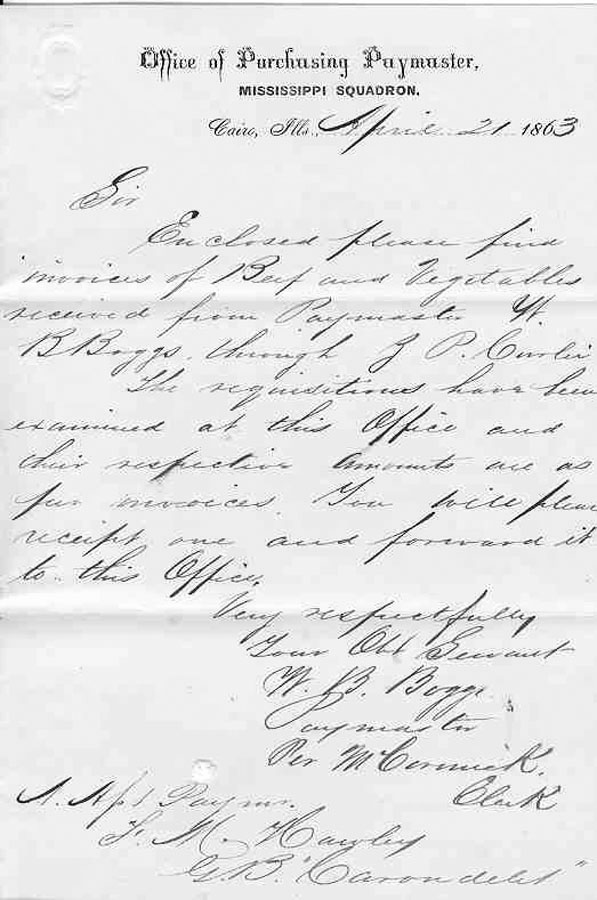 Office of Purchasing Paymaster,
MISSISSIPPI SQUADRON.
Cairo, Ills., April 21 1863
Sir
Enclosed please find
invoices of Beef and Vegetables
received from Paymaster W.
B Boggs, through J P.
The requisitions have been
examined at this Office and
their respective amounts are as
per invoices. You will please
receipt one and forward it
to this Office.
Very respectfully
Your Obt Servant
W. B. Boggs
Paymaster
Per McCormick.
Clerk
A. Asst Paymr.
F. M. Hawley
G.B. "Carondelet"